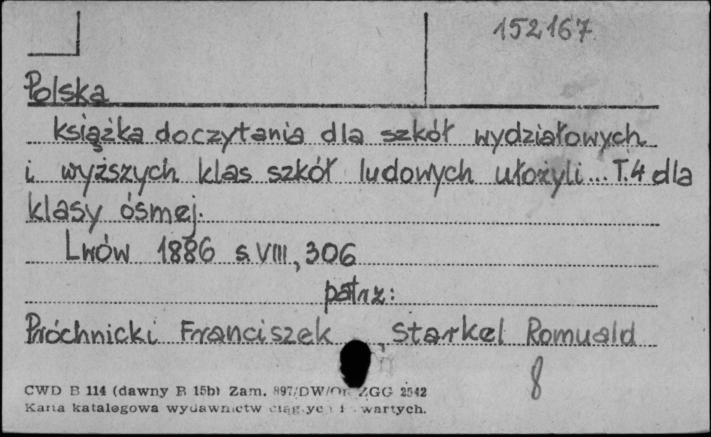 152167
Polska
książka do czytania dla szkół wydziałowych
i wyższych klas szkół ludowych ułożyli... T.4 dla
klasy ósmej.
Lwów 1886 s. VIII, 306
patrz:
Próchnicki Franciszek, Starkel Romuald
8
CWD B 114 (dawny B 15b) Zam. 897/DW/ ZGG 2542
Karta katalogowa wydawnictw i